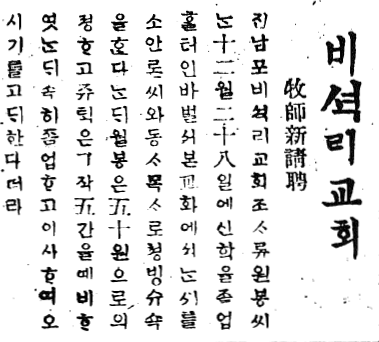 비셕리교회
牧師新請聘
진남포비셕리교회조ᄉᆞ류원봉씨
ᄂᆞᆫ十二월二十八일에신학을졸업
홀터인바벌셔본교회에셔ᄂᆞᆫ
소안론씨와동ᄉᆞ목ᄉᆞ로쳥빙슈쇽
을ᄒᆞᆫ다ᄂᆞᆫᄃᆡ월봉은五十원으로의
졍ᄒᆞ고쥬틱은五간을예비ᄒᆞ
엿ᄂᆞᆫᄃᆡ속히졸업ᄒᆞ고이사ᄒᆞ여오
시기를고ᄃᆡ한다더라